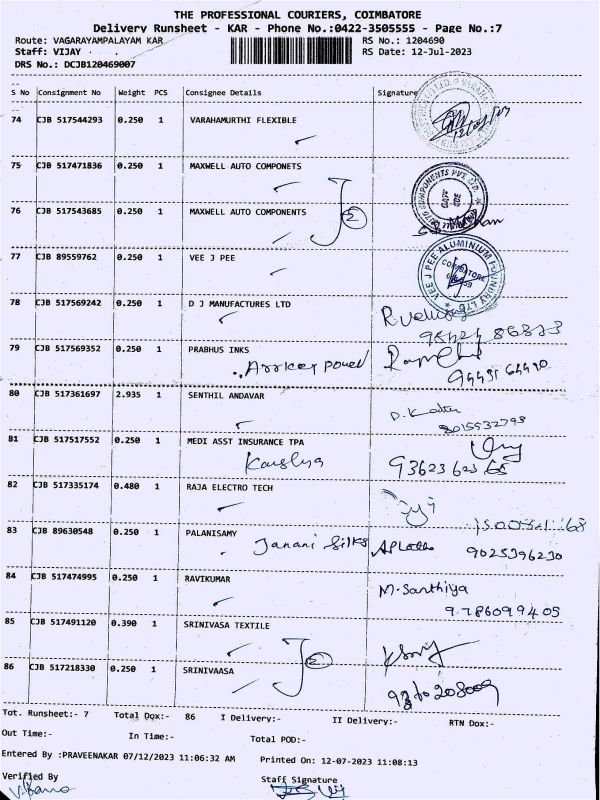 THE PROFESSIONAL COURIERS, COIMBATORE
Delivery Runsheet - KAR - Phone No.:0422-3505555 - Page No.:7
Route: VAGARAYAMPALAYAM KAR RS No.: 1204690
Staff: VIJAY RS Date: 12-Jul-2023
DRS No.: DCJB120469007
S No Consignment No Weight PCS Consignee Details Signature
74 CJB 517544293 0.250 1 VARAHAMURTHI FLEXIBLE
75 CJB 517471836 0.250 1 MAXWELL AUTO COMPONETS
76 CJB 517543685 0.250 1 MAXWELL AUTO COMPONENTS
2
77 CJB 89559762 0.250 1 VEE J PEE
VEE J PEE ALUMINIUM FOUNDRY LTD
COIMBATORE
78 CJB 517569242 0.250 1 D J MANUFACTURES LTD
79 CJB 517569352 0.250 1 PRABHUS INKS
80 CJB 517361697 2.935 1 SENTHIL ANDAVAR
8015532798
81 CJB 517517552 0.250 1 MEDI ASST INSURANCE TPA
9362362365
82 CJB 517335174 0.480 1 RAJA ELECTRO TECH
83 CJB 89630548 0.250 1 PALANISAMY
Janani Silks 9025396230
84 CJB 517474995 0.250 1 RAVIKUMAR
M. Santhiya
9786099405
85 CJB 517491120 0.390 1 SRINIVASA TEXTILE
2
86 CJB 517218330 0.250 1 SRINIVAASA
Tot. Runsheet:- 7 Total Dox:- 86 I Delivery:- II Delivery:- RTN Dox:-
Out Time:- In Time:- Total POD:-
Entered By :PRAVEENAKAR 07/12/2023 11:06:32 AM Printed On: 12-07-2023 11:08:13
Verified By Staff Signature